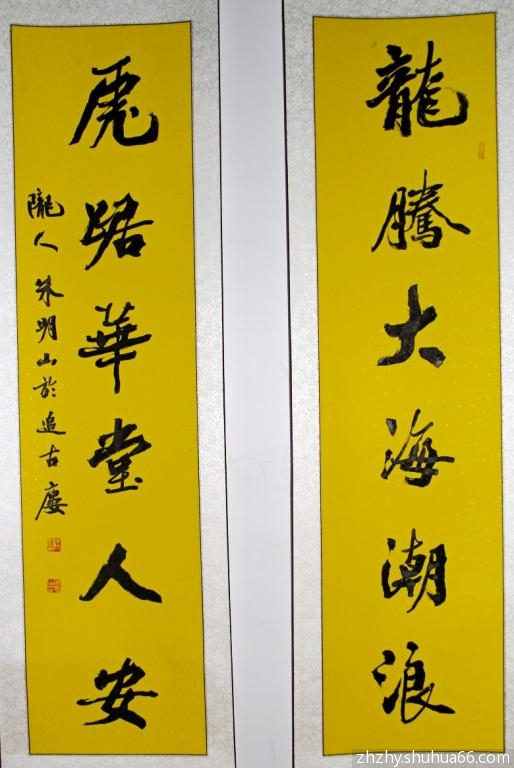 龍騰大海潮浪
虎踞華堂人安
隴人朱明山於追古廔
zhzhyshuhua66.com